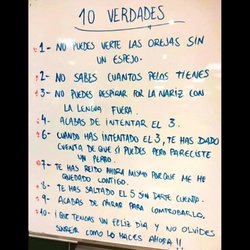 10 VERDADES
1- NO PUEDES VERTE LAS OREJAS SIN
UN ESPEJO.
2- NO SABES CUANTOS PELOS TIENES
3- NO PUEDES RESPIRAR POR LA NARIZ CON
LA LENGUA FUERA.
4- ACABAS DE INTENTAR EL 3.
6- CUANDO HAS INTENTADO EL 3, TE HAS DADO
CUENTA DE QUE SÍ PUEDES PERO PARECISTE
UN PERRO.
7- TE HAS REIDO AHORA MISMO PORQUE ME HE
QUEDADO CONTIGO.
8- TE HAS SALTADO EL 5 SIN DARTE CUENTA.
9- ACABAS DE MIRAR PARA COMPROBARLO.
10- QUE TENGAS UN FELIZ DIA Y NO OLVIDES
SONREIR COMO LO HACES AHORA!!